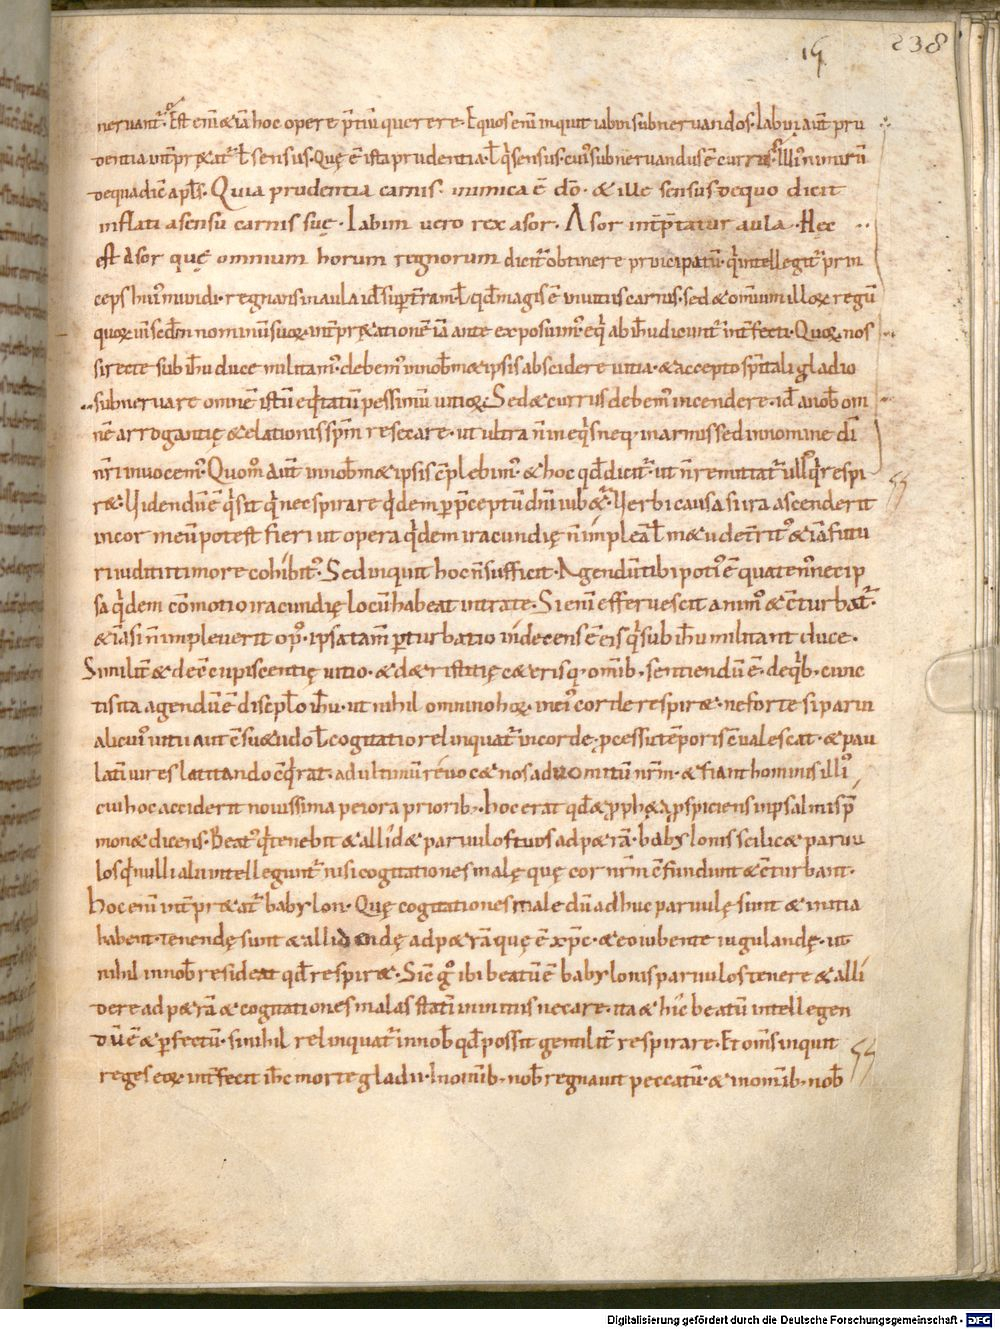 15 238
neruantᷓ. Est eni̅ & ia̅ hoc opere p̅tiu̅ querere. Equos eni̅ inquit iabin subneruandos. Iabin aut̅ pru
dentia int̅pr&atᷓ ł sensus. Quę e̅ ista prudentia. ł q̇ sensus. cui᾽ subneruandus e̅ currus. Illi᾽ nimiru̅
de qua dic̅ apl̅s. Quia prudentia carnis. inimica e̅ do̅. & ille sensus de quo dicit
inflati a sensu carnis suę. Iabin uero rex asor. Asor int̅p̅tatur aula. Hec
est Asor quę omnium horum regnorum dicitᷓ obtinere principatu̅. q̇ intellegitᷓ prin
ceps hui᾽ mundi. regnans in aula id̅ sup̱ t̅ram. ł qd̅ magis e̅ in uitiis carnis. sed & omniu̅ illoꝝ regu̅
quoꝝ in sed̅m nominu̅ suoꝝ. int̅pr&atione̅ ia̅ ante exposuim᾽. eq̇ ab ih̅u dicuntᷓ int̅fecti. Quoꝝ nos
si recte sub ih̅u duce militam᾽. debem᾽ in nob̅ m& ipsis abscidere uitia. & accepto sp̅itali gladio
subneruare omne̅ istu̅ eq̇tatu̅ pessimu̅ uitioꝝ. Sed & currus debem᾽ incendere. id̅ a nob̅ om
ne̅ arrogantię & elationis sp̅m resecare. ut ultra n̅ in eq̇s neq; in armis sed in nomine di̅
n̅ri inuocem᾽. Quom̊ aut̅ in nob̅ m& ipsis c̅plebim᾽. & hoc qd̅ dicitᷓ. ut n̅ remittatᷓ ull᾽ q̇ respi
r&. Uidendu̅ e̅ q̇ sit q̇ nec spirare q̇dem p̱ p̅ceptu̅ dn̅i iub&ᷓ. Uerbi causa si ira ascenderit
in cor meu̅ potest fieri ut opera q̇dem iracundię n̅ implea̅ł m&u det̅rit᾽ & ia̅ futu
ri iudicii timore cohibit᾽. Sed inquit hoc n̅ sufficit. Agendu̅ tibi poti᾽ e̅ quaten᾽ nec ip
sa q̇dem c̅motio iracundię locu̅ habeat intra te. Si eni̅ efferuescit anim᾽ & c̅turbatᷓ.
& ia̅si n̅ impleuerit op᾽. ipsa tam̅ p̱turbatio indecens e̅ eis q̇ sub ih̅u militant duce.
Similit̅ & de c̅cupiscentię uitio. & d& ristitię c&erisq; om̅ib. sentiendu̅ e̅. de q̇b. cunc
tis ita agendu̅ e̅ discip̅lo ih̅u. ut nihil omnino hoꝝ. in ei᾽ corde respir&. ne forte si parui
alicui᾽ uitii aut c̅su&udo ł cogitatio relinquatᷓ in corde. p̱cessu te̅poris c̅ualescat. & pau
lati̅ uires latitando c̅q̇rat. ad ultimu̅ reuoc& nos ad uomitu̅ n̅rm̅. & fiant hominis illi᾽
cui hoc acciderit nouissima peiora priorib.. hoc erat qd̅ & p̱ph&a p̱spiciens in psalmis p̅
mon& dicens. Beat᾽ q̇ tenebit & allid& paruulos tuos ad p&ra̅. babylonis scilic& paruu
los q̇ nulli alii intellegiuntᷓ nisi cogitationes malę quę cor n̅rm̅ c̅fundunt & c̅turbant.
Hoc eni̅ int̅pr&atᷓ babylon. Quę cogitationes male du̅ adhuc paruulę sunt & initia
habent. tenendę sunt & allidendę ad p&ra̅ quę e̅ xp̅c. & eo iubente iugulandę. ut
nihil in nob̅ resideat qd̅ respir&. Sic̅ g᾽ ibi beatu̅ e̅ babylonis paruulos tenere & alli
dere ad p&ra̅ & cogitationes malas stati̅ in initiis necare. ita & hic beatu̅ intellegen
du̅ e̅ & p̱fectu̅. si nihil relinquatᷓ in nob̅ qd̅ possit gentilit̅ respirare. Et om̅s inquit
reges eoꝝ int̅fecit ih̅c morte gladii. In om̅ib. nob̅ regnauit peccatu̅. & in om̅ib. nob̅
Digitalisierung gefördert durch die Deutsche Forschungsgemeinschaft - DFG